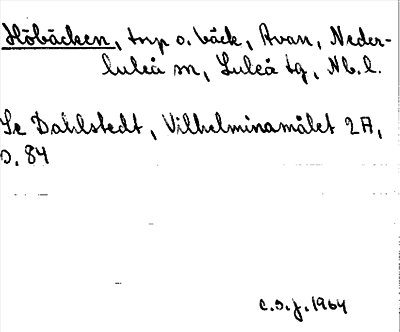 Höbäcken, trp o. bäck, Avan, Neder-
luleå sn, Luleå tg, Nb. l.
Se Dahlstedt, Vilhelminamålet 2A,
s. 84
c.s.j. 1964